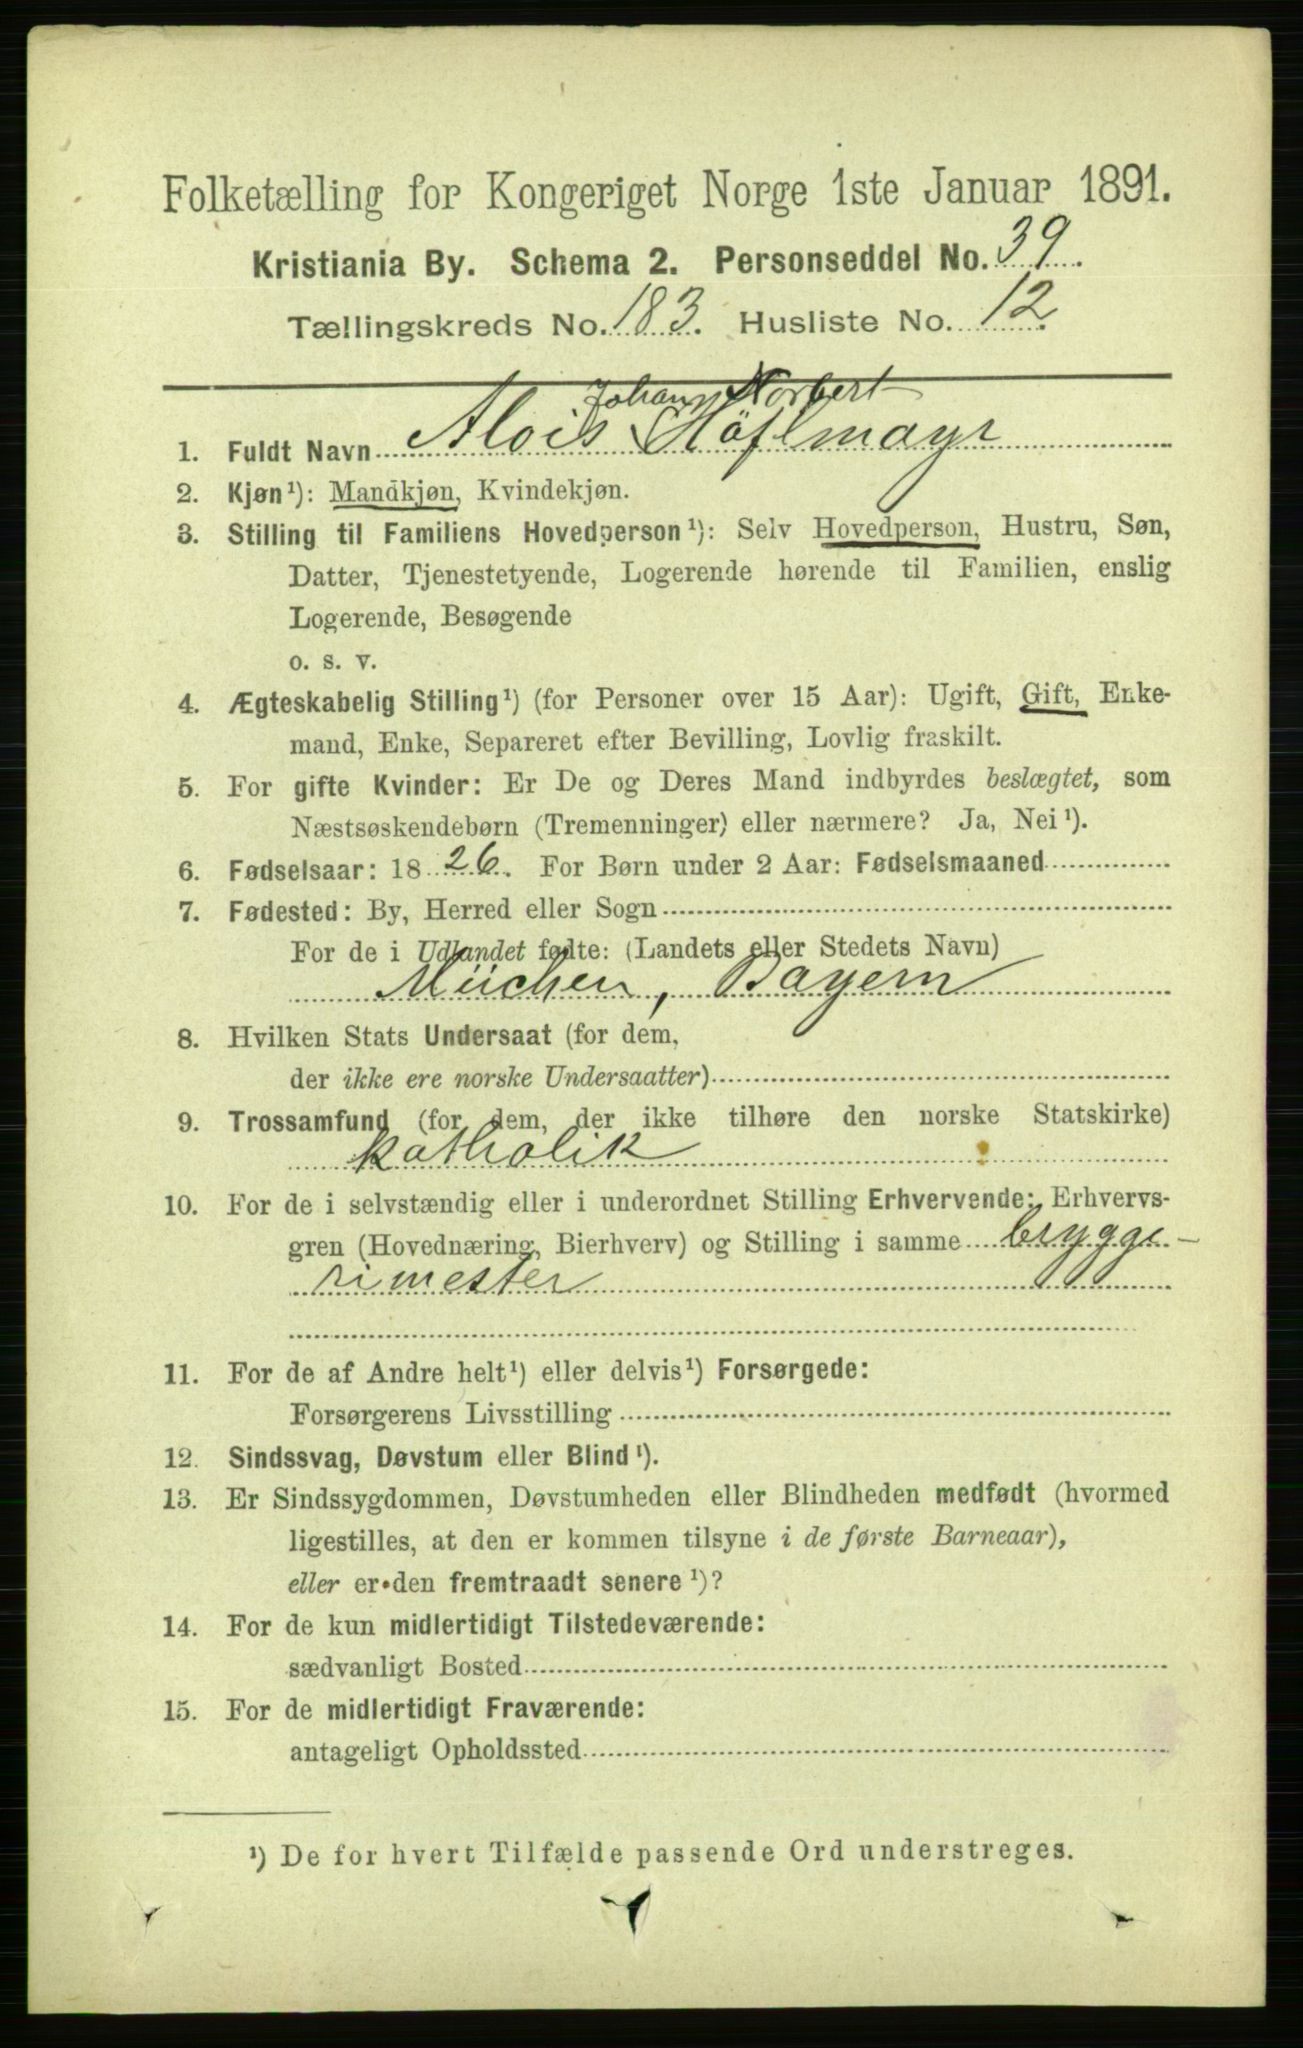 Folketælling for Kongeriget Norge 1ste Januar 1891.
Kristiania By. Schema 2. Personseddel No. 39.
Tællingskreds No. 183. Husliste No. 12.
Johann Norbert
1. Fuldt Navn Alois Höflmayr
2. Kjøn¹): Mandkjøn, Kvindekjøn.
3. Stilling til Familiens Hovedperson¹): Selv Hovedperson, Hustru, Søn,
Datter, Tjenestetyende, Logerende hørende til Familien, enslig
Logerende, Besøgende
o. s. v.
4. Ægteskabelig Stilling¹) (for Personer over 15 Aar): Ugift, Gift, Enke-
mand, Enke, Separeret efter Bevilling, Lovlig fraskilt.
5. For gifte Kvinder: Er De og Deres Mand indbyrdes beslægtet, som
Næstsøskendebørn (Tremenninger) eller nærmere? Ja, Nei¹).
6. Fødselsaar: 1826. For Børn under 2 Aar: Fødselsmaaned
7. Fødested: By, Herred eller Sogn
For de i Udlandet fødte: (Landets eller Stedets Navn)
Müchen, Bayern
8. Hvilken Stats Undersaat (for dem,
der ikke ere norske Undersaatter)
9. Trossamfund (for dem, der ikke tilhøre den norske Statskirke)
katholik
10. For de i selvstændig eller i underordnet Stilling Erhvervende: Erhvervs-
gren (Hovednæring, Bierhverv) og Stilling i samme brygge-
rimester
11. For de af Andre helt¹) eller delvis¹) Forsørgede:
Forsørgerens Livsstilling
12. Sindssvag, Døvstum eller Blind¹).
13. Er Sindssygdommen, Døvstumheden eller Blindheden medfødt (hvormed
ligestilles, at den er kommen tilsyne i de første Barneaar),
eller er den fremtraadt senere¹)?
14. For de kun midlertidigt Tilstedeværende:
sædvanligt Bosted
15. For de midlertidigt Fraværende:
antageligt Opholdssted
¹) De for hvert Tilfælde passende Ord understreges.